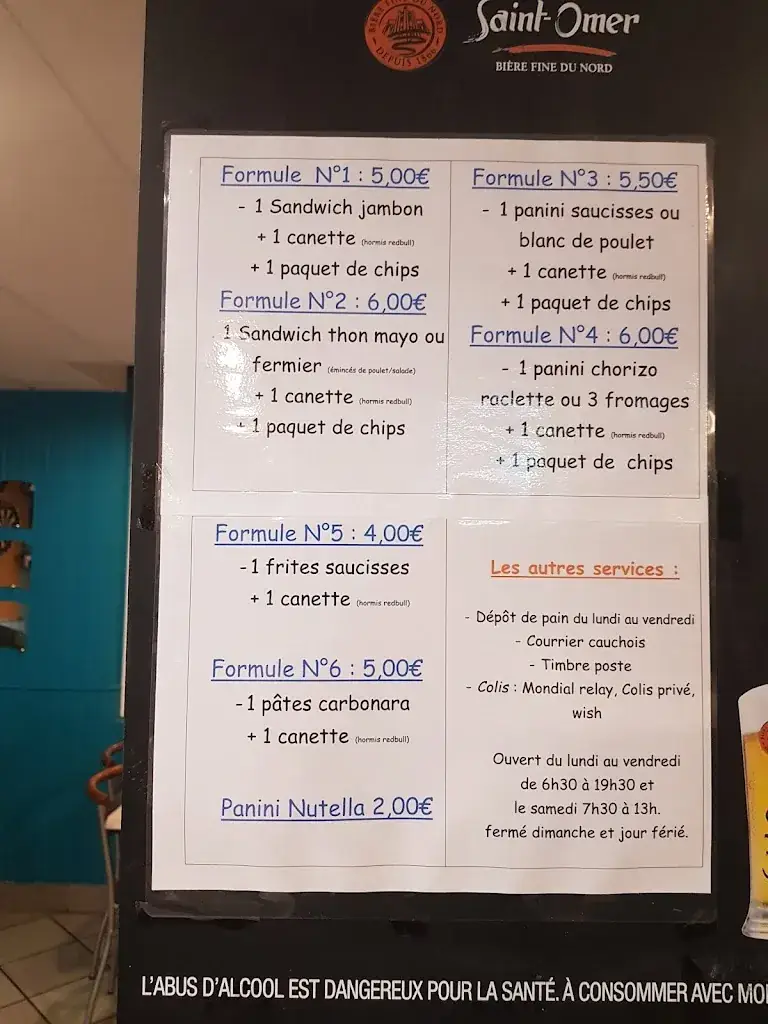 BIÈRE FINE DU NORD
DEPUIS 1866
Saint-Omer
BIÈRE FINE DU NORD
Formule N°1 : 5,00€
- 1 Sandwich jambon
+ 1 canette (hormis redbull)
+ 1 paquet de chips
Formule N°2 : 6,00€
1 Sandwich thon mayo ou
fermier (émincés de poulet/salade)
+ 1 canette (hormis redbull)
+ 1 paquet de chips
Formule N°3 : 5,50€
- 1 panini saucisses ou
blanc de poulet
+ 1 canette (hormis redbull)
+ 1 paquet de chips
Formule N°4 : 6,00€
- 1 panini chorizo
raclette ou 3 fromages
+ 1 canette (hormis redbull)
+ 1 paquet de chips
Formule N°5 : 4,00€
-1 frites saucisses
+ 1 canette (hormis redbull)
Formule N°6 : 5,00€
-1 pâtes carbonara
+ 1 canette (hormis redbull)
Panini Nutella 2,00€
Les autres services :
- Dépôt de pain du lundi au vendredi
- Courrier cauchois
- Timbre poste
- Colis : Mondial relay, Colis privé,
wish
Ouvert du lundi au vendredi
de 6h30 à 19h30 et
le samedi 7h30 à 13h.
fermé dimanche et jour férié.
L'ABUS D'ALCOOL EST DANGEREUX POUR LA SANTÉ. À CONSOMMER AVEC